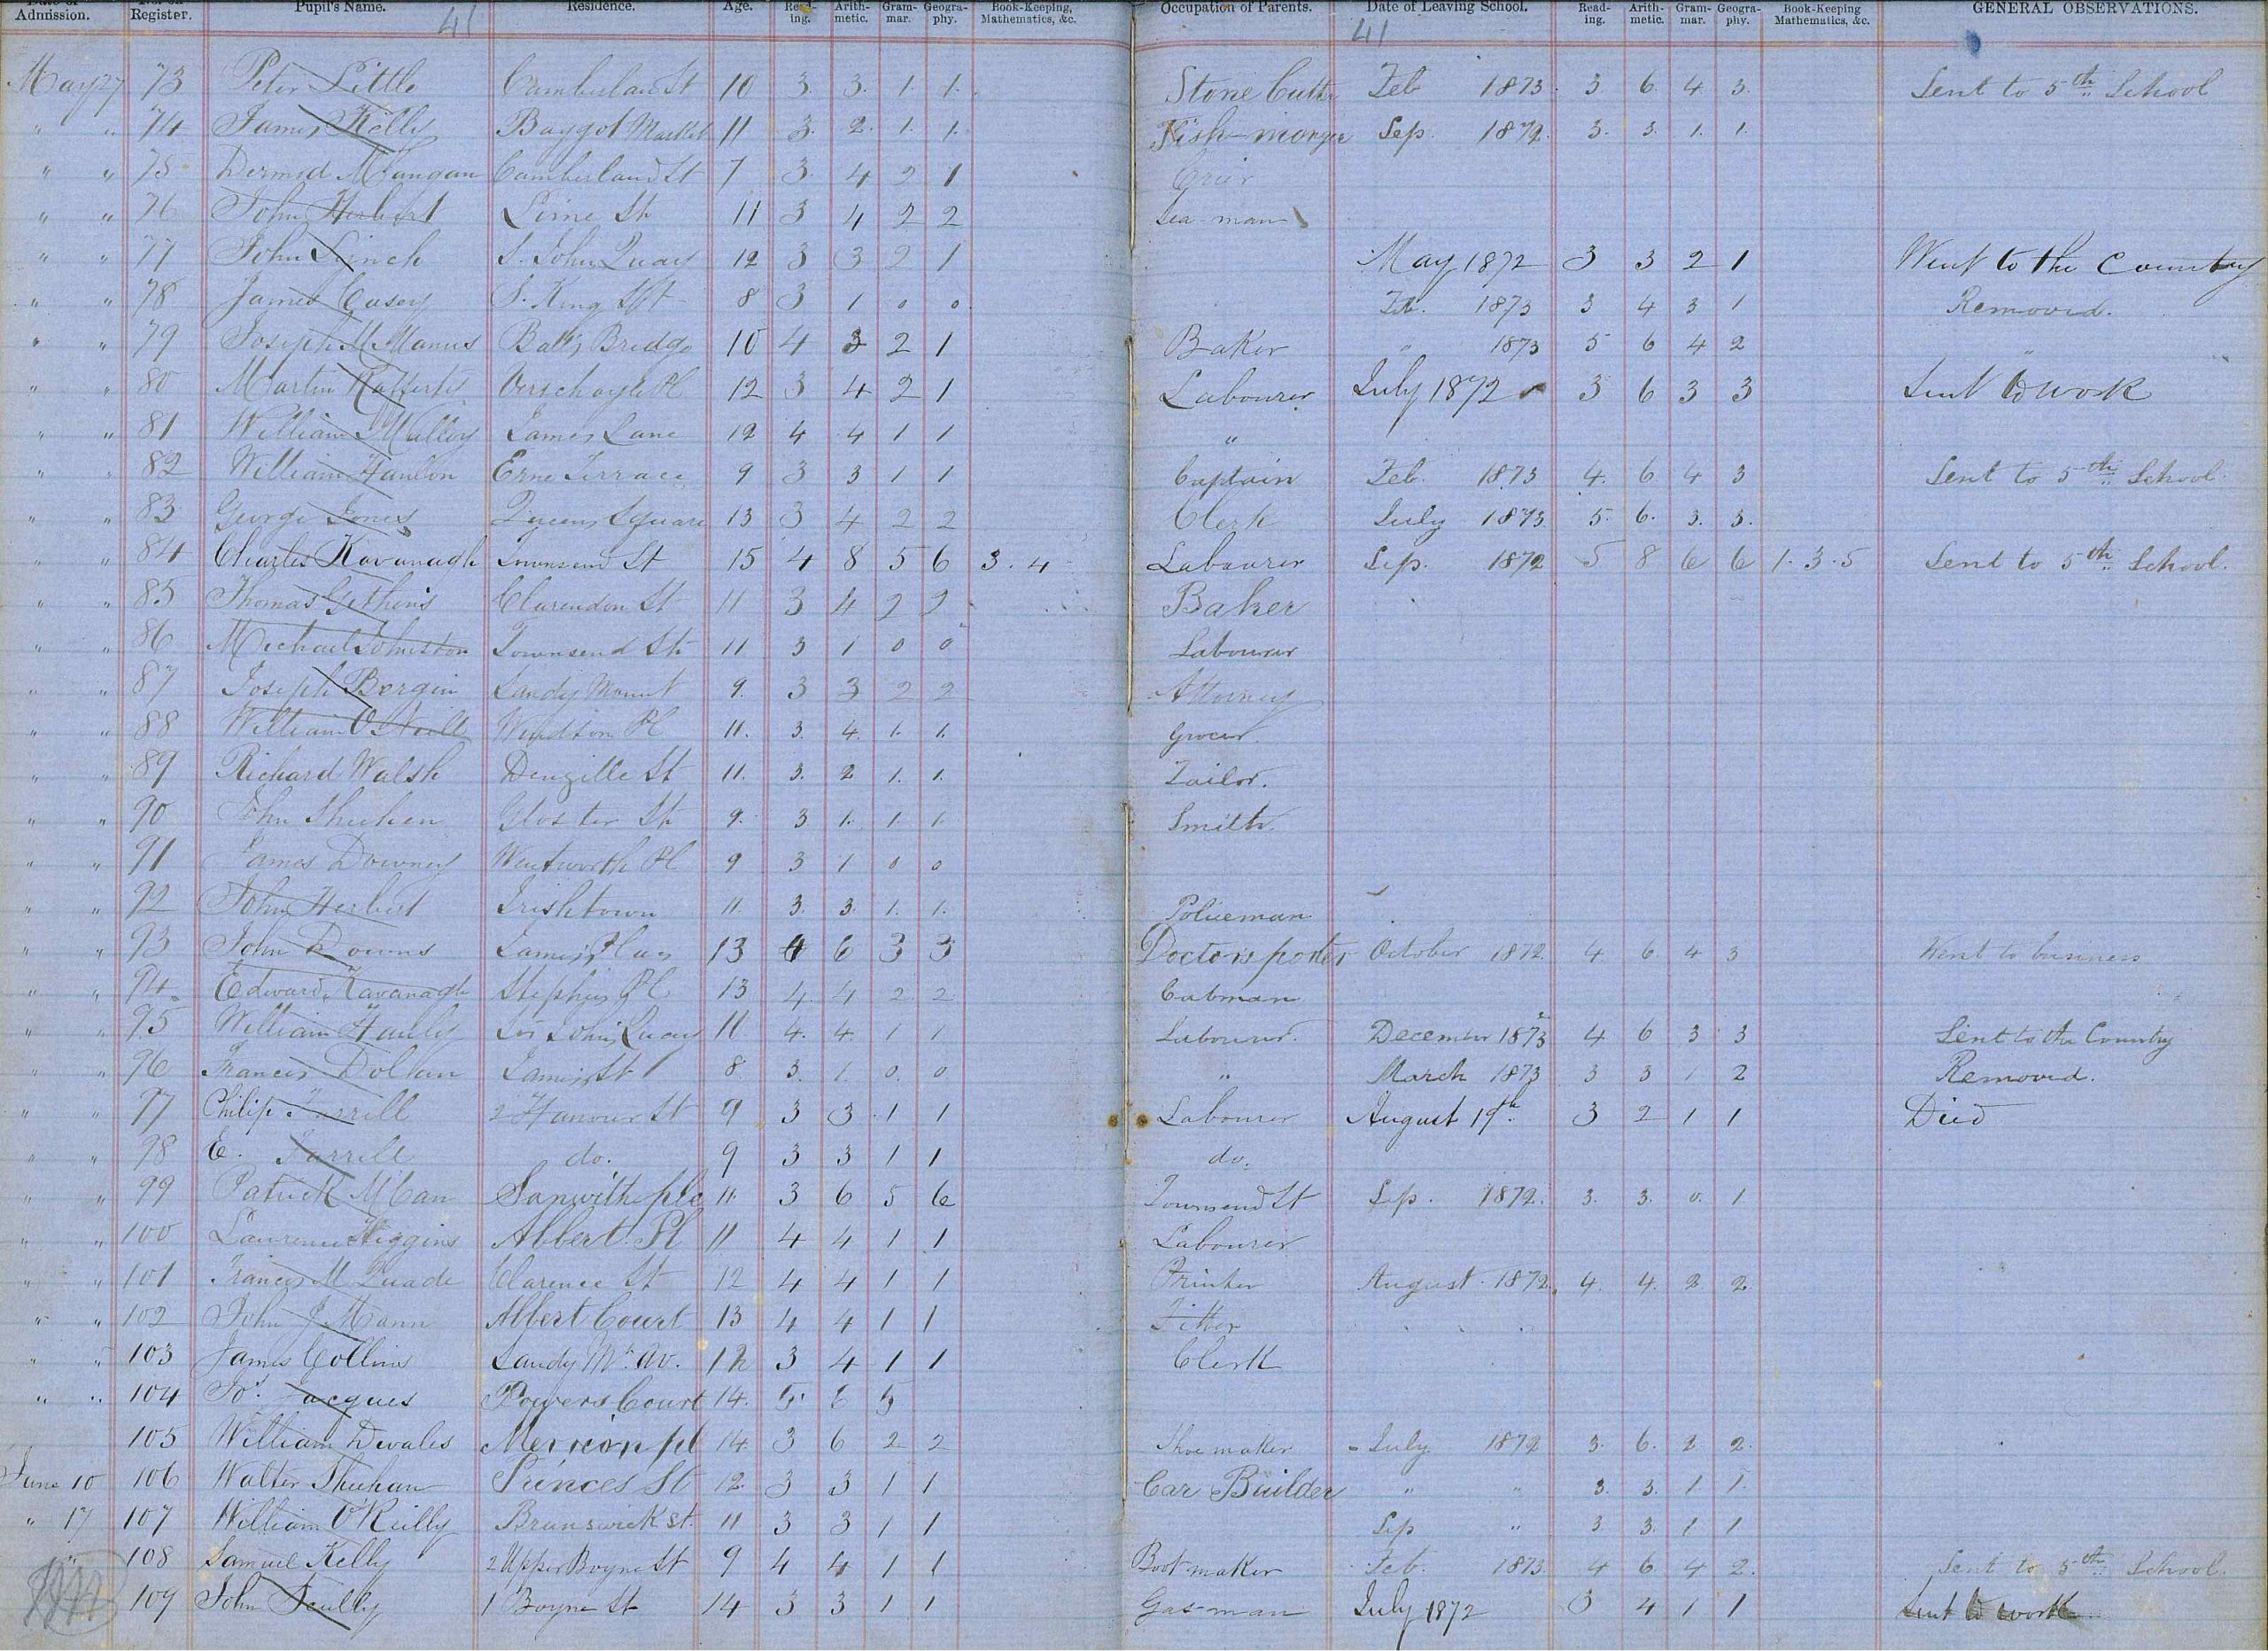 Date of Admission. No. on Register. Pupil's Name. Residence. Age. Read-ing. Arith-metic. Gram-mar. Geogra-phy. Book-Keeping, Mathematics, &c. Occupation of Parents. Date of Leaving School. Read-ing. Arith-metic. Gram-mar. Geogra-phy. Book-Keeping Mathematics, &c. GENERAL OBSERVATIONS.
41 41
May 27 73 Peter Little Cumberland St 10 3. 3. 1. 1. Stone Cutter Feb 1873. 3 6 4 3. Sent to 5th School
" " 74 James Kelly Baggot Market 11 3. 2. 1. 1. Fish-monger Sep. 1872. 3. 3. 1. 1.
" " 75 Dermid Mangan Cumberland St 7 3. 4 2 1
" " 76 John Herbert Lime St 11 3 4 2 2 Sea-man
" " 77 John Linch S. John Quay 12 3 3 2 1 May 1872 3 3 2 1 Went to the Country
" " 78 James Casey S. King St 8 3 1 0 0. Feb. 1873 3 4 3 1 Removed.
" " 79 Joseph McManus Balls Bridge 10 4 3 2 1 Baker " 1873 5 6 4 2 "
" " 80 Martin Rafferty Verschoyle Pl 12 3 4 2 1 Labourer July 1872 3 6 3 3 Sent to work
" " 81 William Mulloy James Lane 12 4 4 1 1 "
" " 82 William Hanlon Erne Terrace 9 3 3 1 1 Captain Feb. 1873 4. 6 4 3 Sent to 5th School.
" " 83 George Jones Queens Square 13 3 4 2 2 Clerk July 1873 5. 6. 3. 3.
" " 84 Charles Kavanagh Townsend St 15 4 8 5 6 3. 4 Labourer Sep. 1872 5 8 6 6 1. 3. 5 Sent to 5th School.
" " 85 Thomas Gethins Clarendon St 11 3 4 2 2 Baker
" " 86 Michael Johnston Townsend St 11 3 1 0 0 Labourer
" " 87 Joseph Bergin Sandy Mount 9. 3 3 2 2 Attorney
" " 88 William O'Neill Windsor Pl 11. 3. 4. 1. 1. Grocer.
" " 89 Richard Walsh Denzille St 11. 3. 2 1. 1. Tailor.
" " 90 John Sheehen Gloster St 9. 3 1. 1. 1. Smith.
" " 91 James Downey Wentworth Pl 9 3 1 0 0
" " 92 John Herbert Irishtown 11. 3. 3. 1. 1. Policeman
" " 93 John Downs James Place 13 4 6 3 3 Doctor's porter October 1872 4 6 4 3 Went to business
" " 94 Edward Kavanagh Stephens Pl 13 4. 4 2 2 Cabman
" " 95 William Hanly Sir John's Quay 11 4. 4. 1 1 Labourer. December 1873 4 6 3 3 Sent to the Country
" " 96 Francis Dollan James St 8 3. 1. 0. 0 " March 1873 3 3 1 2 Removed.
" " 97 Philip Farrill 2 Hanover St 9 3 3 1 1 Labourer August 19th 3 2 1 1 Died
" " 98 E. Farrill do. 9 3 3 1 1 do.
" " 99 Patrick McCan Sanwith plc 11. 3 6 5 6 Townsend St Sep. 1872. 3. 3. 0. 1
" " 100 Laurence Higgins Albert Pl 11 4 4 1 1 Labourer
" " 101 Francis McQuade Clarence St 12 4 4 1 1 Printer August 1872. 4. 4. 2 2
" " 102 John J. Mann Albert Court 13 4 4 1 1 Fitter
" " 103 James Collins Sandy Mt. Av. 12 3 4 1 1 Clerk
" " 104 Jos. Jacques Powers Court 14. 5 6 5
105 William Devales Merrion pl 14 3 6 2 2 Shoemaker July 1872 3. 6. 2 2.
June 10 106 Walter Sheehan Princes St 12. 3 3 1 1 Car Builder " " 3. 3. 1 1.
" 17 107 William O'Reilly Brunswick st. 11 3 3 1 1 Sep " 3 3. 1 1
" 108 Samuel Kelly 2 Upper Boyne St 9 4 4 1 1 Boot-maker Feb. 1873 4 6 4 2. Sent to 5th School.
109 John Scully 1 Boyne St 14 3 3 1 1 Gas-man July 1872 3 4 1 1 Sent to work